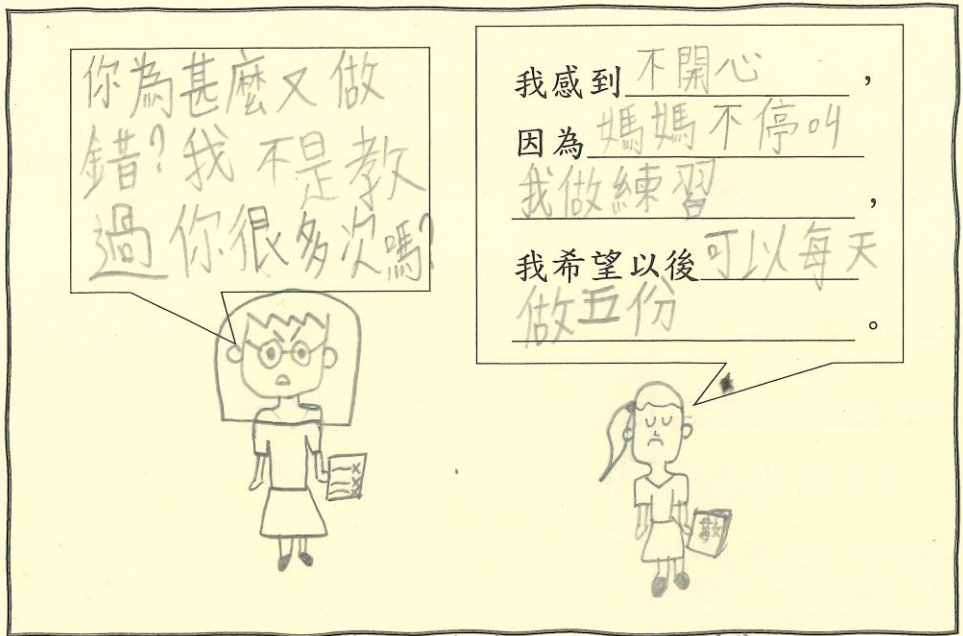 你為甚麼又做
錯?我不是教
過你很多次嗎?
我感到不開心,
因為媽媽不停叫
我做練習,
我希望以後可以每天
做五份。